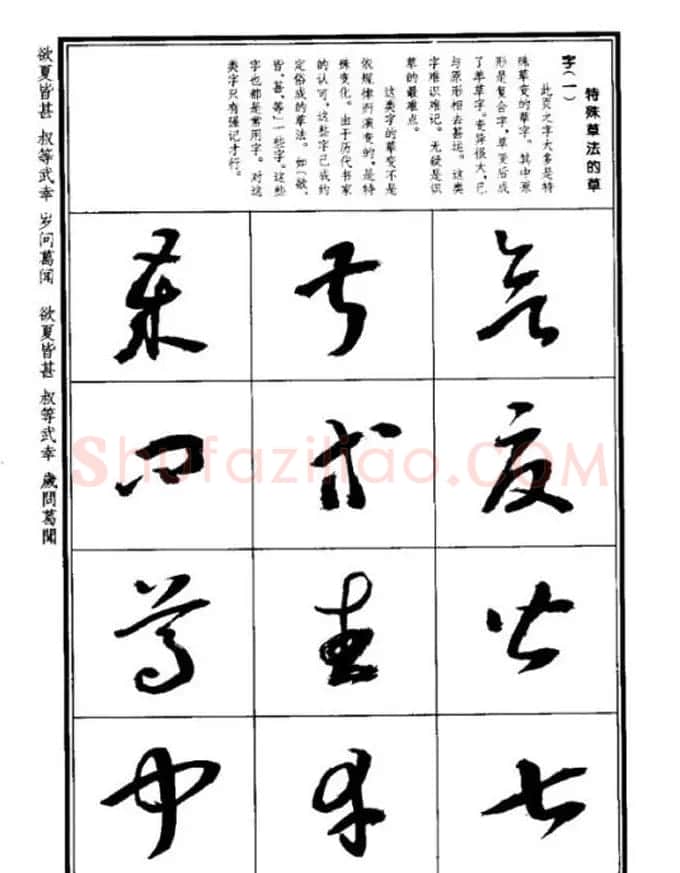 特殊草法的草
字(一)
此页之字大多是特
殊草变的草字。其中原
形是复合字,草变后成
了单草字。变异很大,已
与原形相去甚远。这类
字难识难记。无疑是识
草的最难点。
这类字的草变不是
依规律而演变的,是特
殊变化。由于历代书家
的认可,这些字已成约
定俗成的草法。如「欲、
皆、甚、等」一些字。这些
字也都是常用字。对这
类字只有强记才行。
欲夏皆甚
叔等武幸
岁问葛闻
欲夏皆甚 叔等武幸 岁问葛闻 欲夏皆甚 叔等武幸 歲問葛聞
Shufaziliao.COM